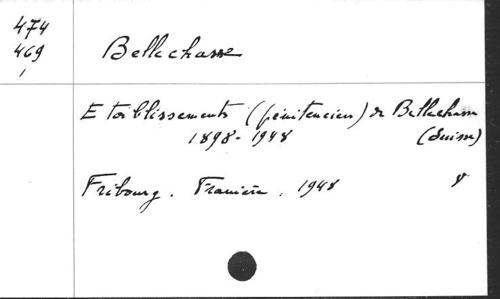 474
469
1
Bellechasse
Etablissements (pénitenciers) de Bellechasse
1898-1948
(Suisse)
Fribourg. Franière. 1948
8